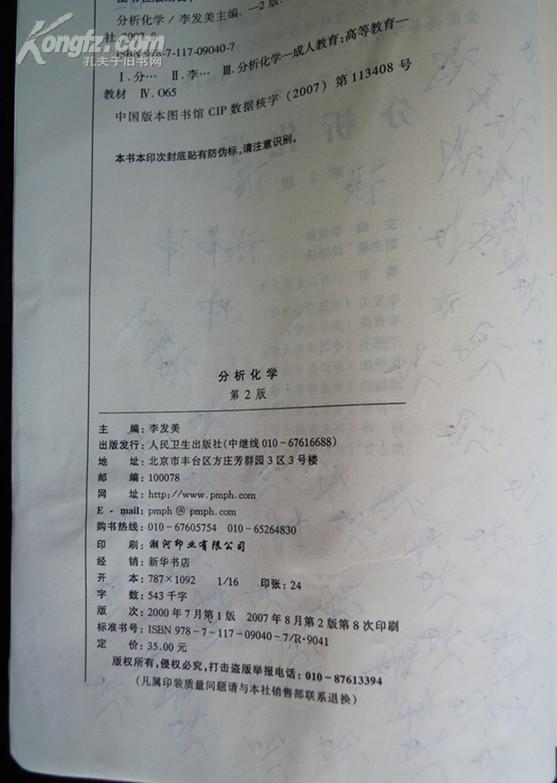 Kongfz.com
孔夫子旧书网
分析化学／李发美主编. —2版.
社, 2007.8
ISBN 978-7-117-09040-7
Ⅰ. 分… Ⅱ. 李… Ⅲ. 分析化学—成人教育:高等教育—
教材 Ⅳ. O65
中国版本图书馆 CIP 数据核字（2007）第 113408 号
本书本印次封底贴有防伪标,请注意识别。
分析化学
第 2 版
主 编: 李发美
出版发行: 人民卫生出版社(中继线 010－67616688)
地 址: 北京市丰台区方庄芳群园 3 区 3 号楼
邮 编: 100078
网 址: http://www.pmph.com
E - mail: pmph @ pmph.com
购书热线: 010－67605754 010－65264830
印 刷: 潮河印业有限公司
经 销: 新华书店
开 本: 787×1092 1/16 印张: 24
字 数: 543 千字
版 次: 2000 年 7 月第 1 版 2007 年 8 月第 2 版第 8 次印刷
标准书号: ISBN 978－7－117－09040－7/R·9041
定 价: 35.00 元
版权所有,侵权必究,打击盗版举报电话: 010－87613394
(凡属印装质量问题请与本社销售部联系退换)